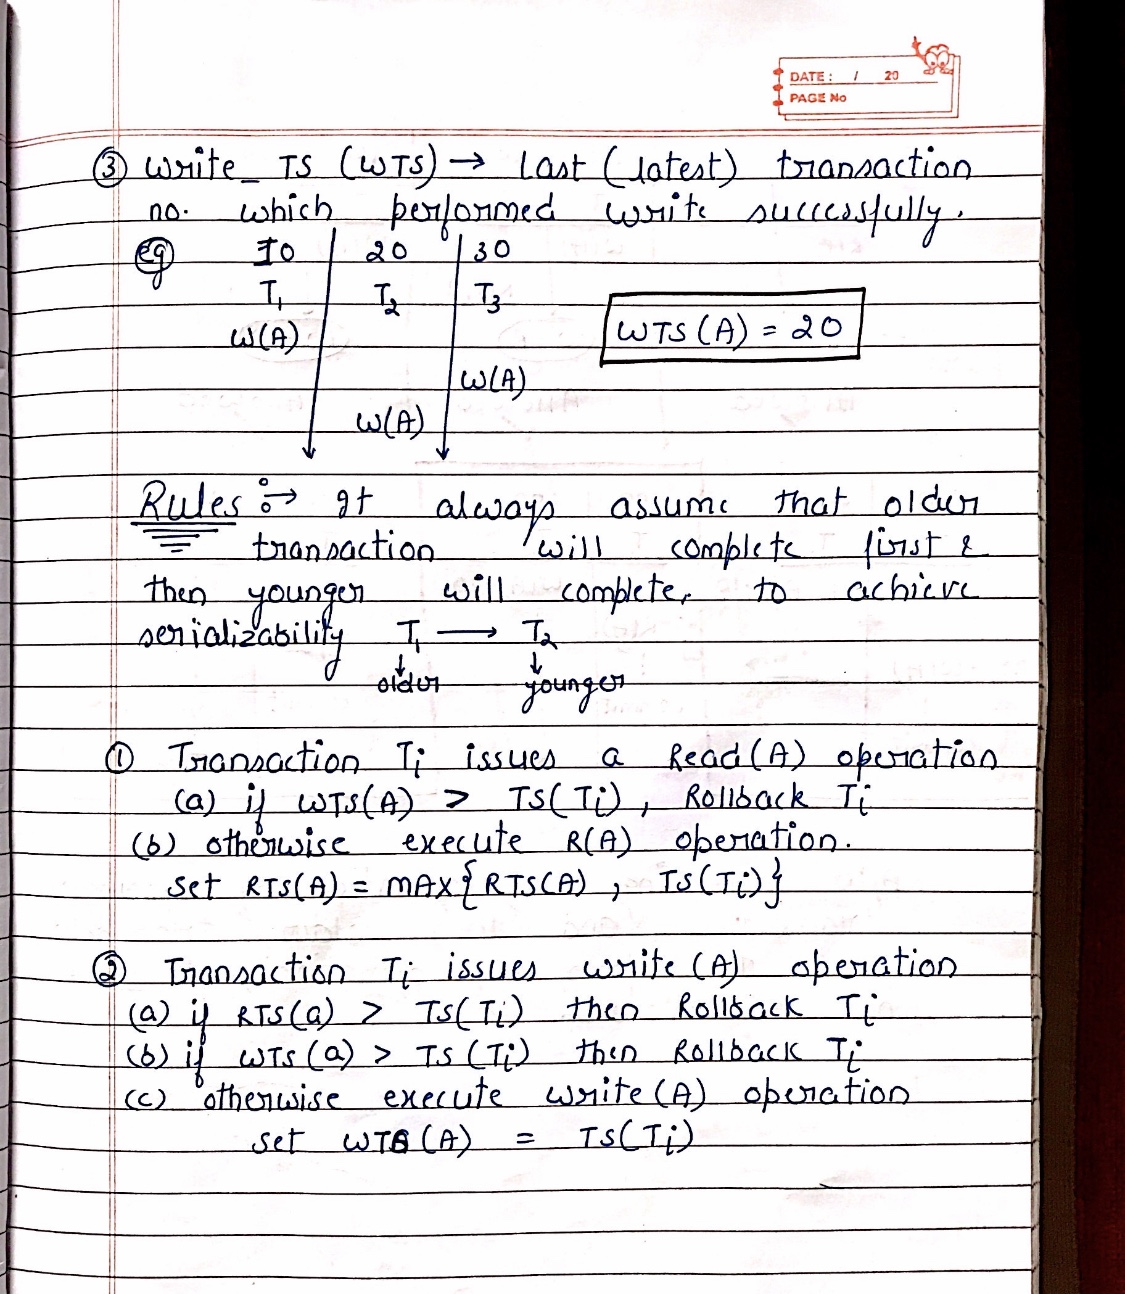 DATE: / 20
PAGE No
③ Write_TS (WTS) → Last (latest) transaction
no. which performed write successfully.
eg 10 20 30
T1 T2 T3
W(A)
WTS(A) = 20
W(A)
W(A)
Rules :→ It always assume that older
transaction will complete first &
then younger will complete, to achieve
serializability T1 → T2
↓ ↓
older younger
① Transaction Ti issues a Read(A) operation
(a) if WTS(A) > TS(Ti), Rollback Ti
(b) otherwise execute R(A) operation.
set RTS(A) = MAX{RTS(A), TS(Ti)}
② Transaction Ti issues write(A) operation
(a) if RTS(a) > TS(Ti) then Rollback Ti
(b) if WTS(a) > TS(Ti) then Rollback Ti
(c) otherwise execute write(A) operation
set WTS(A) = TS(Ti)